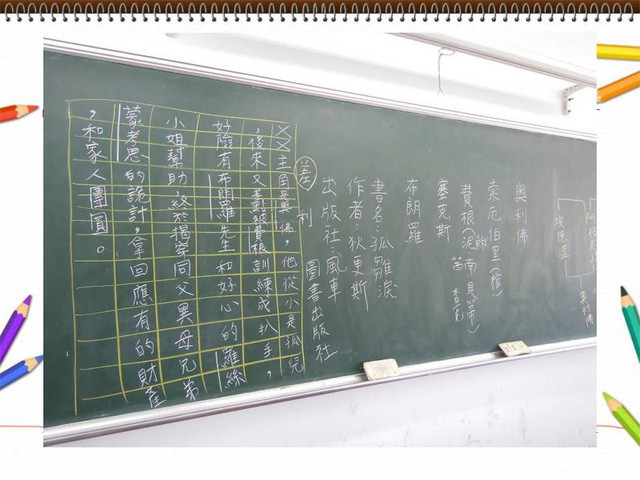 奧利佛
索厄伯里(棺)
費根(
塞克斯
布朗羅
書名:孤雛淚
作者:狄更斯
出版社:風車
圖書出版社
差
利
XX主角是奧佛,他從小是孤兒
,後來又差點被費根訓練成扒手,
好險有布朗羅先生和好心的羅絲
小姐幫助,終於揭穿同父異母兄弟
蒙考思的詭計,拿回應有的財產
,和家人團圓。